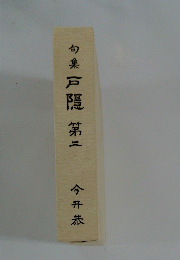 句集
戸隠
第二
今井恭